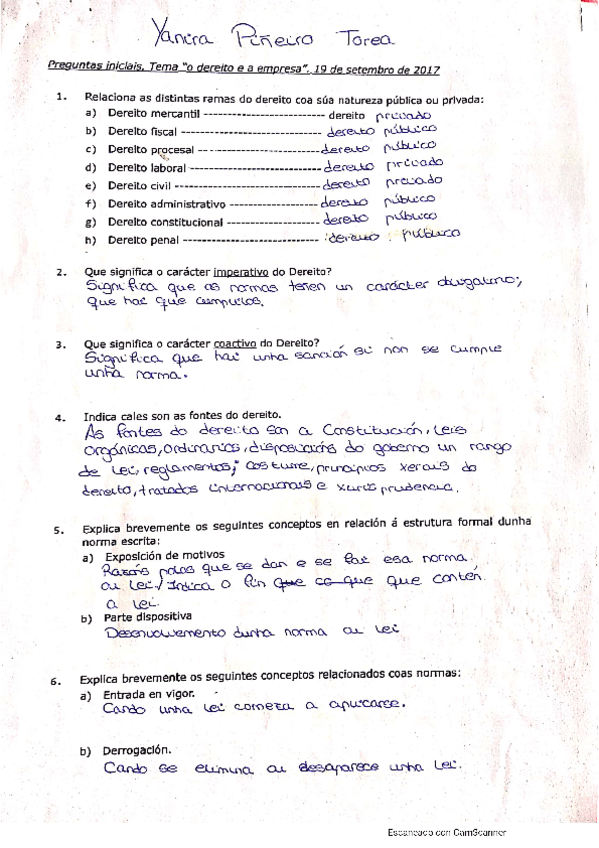 Yanira Piñeiro Torea
Preguntas iniciais. Tema "o dereito e a empresa". 19 de setembro de 2017
1. Relaciona as distintas ramas do dereito coa súa natureza pública ou privada:
a) Dereito mercantil --------------------------- dereito privado
b) Dereito fiscal ------------------------------- dereito público
c) Dereito procesal --------------------------- dereito público
d) Dereito laboral ----------------------------- dereito privado
e) Dereito civil -------------------------------- dereito privado
f) Dereito administrativo -------------------- dereito público
g) Dereito constitucional -------------------- dereito público
h) Dereito penal ------------------------------ dereito público
2. Que significa o carácter imperativo do Dereito?
Significa que as normas teñen un carácter obrigatorio;
que hai que cumprilos.
3. Que significa o carácter coactivo do Dereito?
Significa que hai unha sanción si non se cumple
unha norma.
4. Indica cales son as fontes do dereito.
As fontes do dereito son a Constitución, leis
orgánicas, ordinarias, disposicións do goberno un rango
de lei, reglamentos; costume, principios xerais do
dereito, tratados internacionais e xurisprudencia.
5. Explica brevemente os seguintes conceptos en relación á estrutura formal dunha
norma escrita:
a) Exposición de motivos
Razóns polas que se dan e se fai esa norma
ou lei / Indica o fin que co que que contén
a lei.
b) Parte dispositiva
Desenvolvemento dunha norma ou lei
6. Explica brevemente os seguintes conceptos relacionados coas normas:
a) Entrada en vigor.
Cando unha lei comeza a aplicarse.
b) Derrogación.
Cando se elimina ou desaparece unha lei.
Escaneado con CamScanner